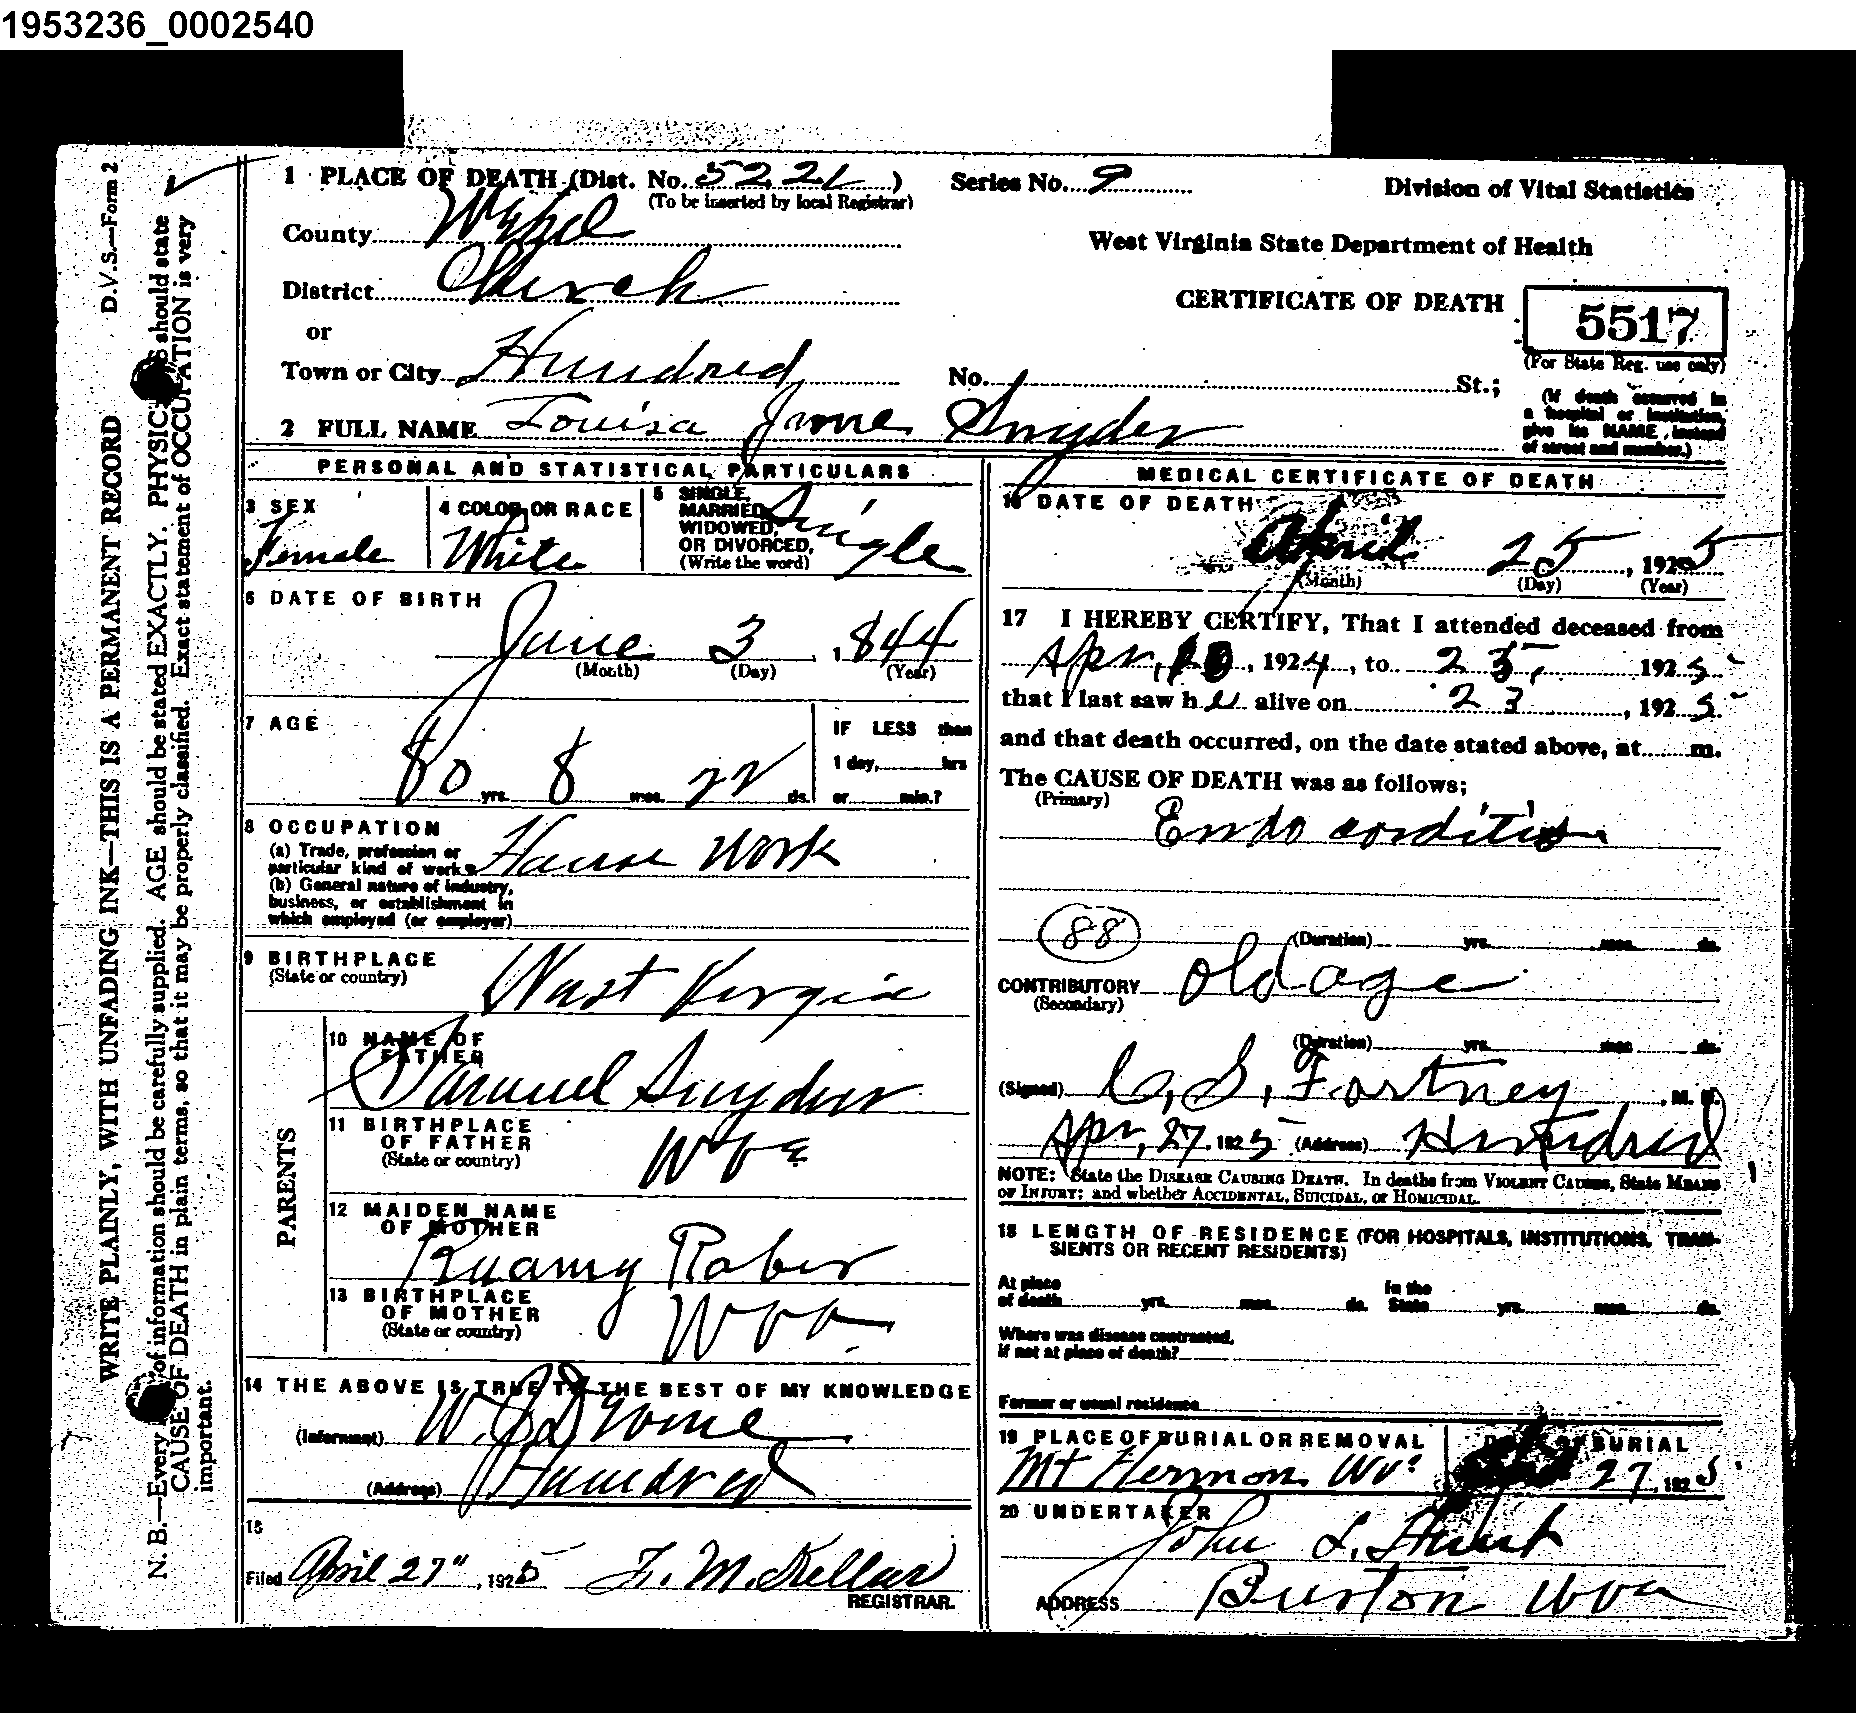 1953236_0002540
1 PLACE OF DEATH (Dist. No. 5221) Series No. 9 Division of Vital Statistics
(To be inserted by local Registrar)
County Wetzel
West Virginia State Department of Health
District Church
CERTIFICATE OF DEATH 5517
or
(For State Reg. use only)
Town or City Hundred No. St.;
(If death occurred in
a hospital or institution,
give its NAME, instead
of street and number.)
2 FULL NAME Louisa Jane Snyder
PERSONAL AND STATISTICAL PARTICULARS
3 SEX
Female
4 COLOR OR RACE
White
5 SINGLE,
MARRIED,
WIDOWED,
OR DIVORCED,
(Write the word)
Single
6 DATE OF BIRTH
June 3, 1844
(Month) (Day) (Year)
7 AGE
80 yrs. 8 mos. 22 ds.
IF LESS than
1 day, hrs
or min.?
8 OCCUPATION
(a) Trade, profession or
particular kind of work House Work
(b) General nature of industry,
business, or establishment in
which employed (or employer)
9 BIRTHPLACE
(State or country)
West Virgia
PARENTS
10 NAME OF
FATHER
Samuel Snyder
11 BIRTHPLACE
OF FATHER
(State or country)
W Va
12 MAIDEN NAME
OF MOTHER
Raber
13 BIRTHPLACE
OF MOTHER
(State or country)
W Va.
14 THE ABOVE IS TRUE TO THE BEST OF MY KNOWLEDGE
(Informant) W.
(Address) Hundred
15
Filed April 27", 1925 F. McKellar
REGISTRAR.
MEDICAL CERTIFICATE OF DEATH
16 DATE OF DEATH
April 25, 1925
(Month) (Day) (Year)
17 I HEREBY CERTIFY, That I attended deceased from
Apr, 10, 1924, to 23, 1925
that I last saw her alive on 23, 1925
and that death occurred, on the date stated above, at m.
The CAUSE OF DEATH was as follows;
(Primary)
Endo corditis
88 (Duration) yrs. mos. ds.
CONTRIBUTORY Old age
(Secondary)
(Duration) yrs. mos. ds.
(Signed) C. S. Fortney, M. D.
Apr, 27, 1925 (Address) Hundred
NOTE: State the DISEASE CAUSING DEATH. In deaths from VIOLENT CAUSES, State MEANS
OF INJURY; and whether ACCIDENTAL, SUICIDAL, or HOMICIDAL.
18 LENGTH OF RESIDENCE (FOR HOSPITALS, INSTITUTIONS, TRAN-
SIENTS OR RECENT RESIDENTS)
At place
of death yrs. mos. ds. In the
State yrs. mos. ds.
Where was disease contracted,
if not at place of death?
Former or usual residence
19 PLACE OF BURIAL OR REMOVAL
Mt Hermon Wva
BURIAL
27, 1925
20 UNDERTAKER
John L.
ADDRESS Burton WVa
D.V.S.—Form 2
WRITE PLAINLY, WITH UNFADING INK—THIS IS A PERMANENT RECORD
N. B.—Every of information should be carefully supplied. AGE should be stated EXACTLY. PHYSIC S should state
CAUSE OF DEATH in plain terms, so that it may be properly classified. Exact statement of OCCUPATION is very
important.